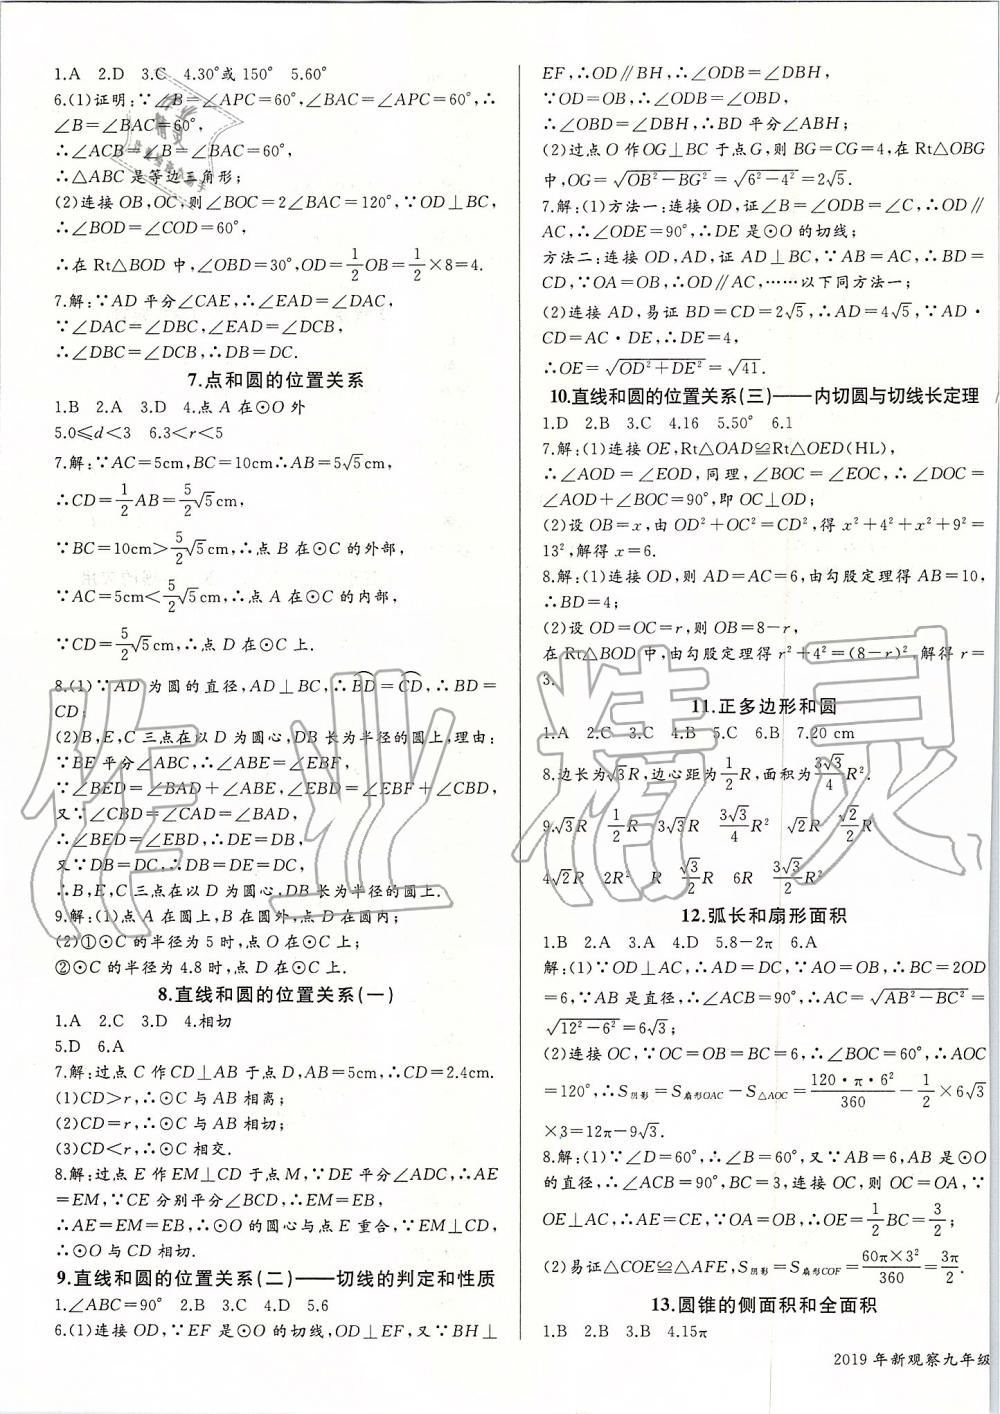 1.A 2.D 3.C 4.30°或150° 5.60°
6.(1)证明:∵∠B=∠APC=60°,∠BAC=∠APC=60°,∴
∠B=∠BAC=60°,
∴∠ACB=∠B=∠BAC=60°,
∴△ABC是等边三角形;
(2)连接OB,OC,则∠BOC=2∠BAC=120°,∵OD⊥BC,
∴∠BOD=∠COD=60°,
∴在Rt△BOD中,∠OBD=30°,OD=1/2OB=1/2×8=4.
7.解:∵AD平分∠CAE,∴∠EAD=∠DAC,
∵∠DAC=∠DBC,∠EAD=∠DCB,
∴∠DBC=∠DCB,∴DB=DC.
7.点和圆的位置关系
1.B 2.A 3.D 4.点A在⊙O外
5.0≤d<3 6.3<r<5
7.解:∵AC=5cm,BC=10cm∴AB=5√5cm,
∴CD=1/2AB=5/2√5cm,
∵BC=10cm>5/2√5cm,∴点B在⊙C的外部,
∵AC=5cm<5/2√5cm,∴点A在⊙C的内部,
∵CD=5/2√5cm,∴点D在⊙C上.
8.(1)∵AD为圆的直径,AD⊥BC,∴BD=CD,∴BD=
CD;
(2)B,E,C三点在以D为圆心,DB长为半径的圆上,理由:
∵BE平分∠ABC,∴∠ABE=∠EBF,
∵∠BED=∠BAD+∠ABE,∠EBD=∠EBF+∠CBD,
又∵∠CBD=∠CAD=∠BAD,
∴∠BED=∠EBD,∴DE=DB,
又∵DB=DC,∴DB=DE=DC,
∴B,E,C三点在以D为圆心,DB长为半径的圆上.
9.解:(1)点A在圆上,B在圆外,点D在圆内;
(2)①⊙C的半径为5时,点O在⊙C上;
②⊙C的半径为4.8时,点D在⊙C上.
8.直线和圆的位置关系(一)
1.A 2.C 3.D 4.相切
5.D 6.A
7.解:过点C作CD⊥AB于点D,AB=5cm,∴CD=2.4cm.
(1)CD>r,∴⊙C与AB相离;
(2)CD=r,∴⊙C与AB相切;
(3)CD<r,∴⊙C与AB相交.
8.解:过点E作EM⊥CD于点M,∵DE平分∠ADC,∴AE
=EM,∵CE分别平分∠BCD,∴EM=EB,
∴AE=EM=EB,∴⊙O的圆心与点E重合,∵EM⊥CD,
∴⊙O与CD相切.
9.直线和圆的位置关系(二)——切线的判定和性质
1.∠ABC=90° 2.B 3.C 4.D 5.6
6.(1)连接OD,∵EF是⊙O的切线,OD⊥EF,又∵BH⊥
EF,∴OD∥BH,∴∠ODB=∠DBH,
∵OD=OB,∴∠ODB=∠OBD,
∴∠OBD=∠DBH,∴BD平分∠ABH;
(2)过点O作OG⊥BC于点G,则BG=CG=4,在Rt△OBG
中,OG=√(OB²-BG²)=√(6²-4²)=2√5.
7.解:(1)方法一:连接OD,证∠B=∠ODB=∠C,∴OD∥
AC,∴∠ODE=90°,∴DE是⊙O的切线;
方法二:连接OD,AD,证AD⊥BC,∵AB=AC,∴BD=
CD,∵OA=OB,∴OD∥AC,……以下同方法一;
(2)连接AD,易证BD=CD=2√5,∴AD=4√5,∵AD·
CD=AC·DE,∴DE=4,
∴OE=√(OD²+DE²)=√41.
10.直线和圆的位置关系(三)——内切圆与切线长定理
1.D 2.B 3.C 4.16 5.50° 6.1
7.解:(1)连接OE,Rt△OAD≌Rt△OED(HL),
∴∠AOD=∠EOD,同理,∠BOC=∠EOC,∴∠DOC=
∠AOD+∠BOC=90°,即OC⊥OD;
(2)设OB=x,由OD²+OC²=CD²,得x²+4²+x²+9²=
13²,解得x=6.
8.解:(1)连接OD,则AD=AC=6,由勾股定理得AB=10,
∴BD=4;
(2)设OD=OC=r,则OB=8-r,
在Rt△BOD中,由勾股定理得r²+4²=(8-r)²,解得r=
3.
11.正多边形和圆
1.A 2.C 3.C 4.B 5.C 6.B 7.20 cm
8.边长为√3R,边心距为1/2R,面积为3√3/4R².
9.√3R 1/2R 3√3R 3√3/4R² √2R √2/2R
4√2R 2R² R √3/2R 6R 3√3/2R²
12.弧长和扇形面积
1.B 2.A 3.A 4.D 5.8-2π 6.A
解:(1)∵OD⊥AC,∴AD=DC,∵AO=OB,∴BC=2OD
=6,∵AB是直径,∴∠ACB=90°,∴AC=√(AB²-BC²)=
√(12²-6²)=6√3;
(2)连接OC,∵OC=OB=BC=6,∴∠BOC=60°,∴∠AOC
=120°,∴S阴影=S扇形OAC-S△AOC=120·π·6²/360-1/2×6√3
×3=12π-9√3.
8.解:(1)∵∠D=60°,∴∠B=60°,又∵AB=6,AB是⊙O
的直径,∴∠ACB=90°,BC=3,连接OC,则OC=OA,∵
OE⊥AC,∴AE=CE,∵OA=OB,∴OE=1/2BC=3/2;
(2)易证△COE≌△AFE,S阴影=S扇形COF=60π×3²/360=3π/2.
13.圆锥的侧面积和全面积
1.B 2.B 3.B 4.15π
2019年新观察九年级
作业精灵